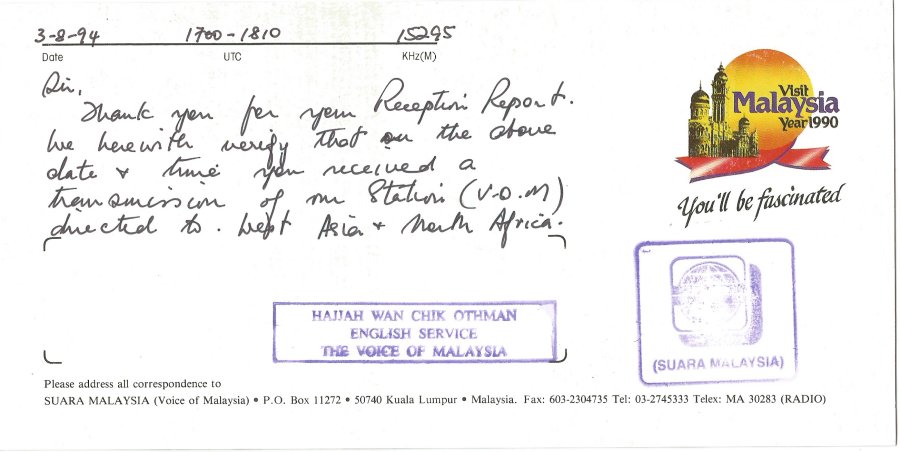 3-8-94 1700-1810 15295
Date UTC KHz(M)
Sir,
Thank you for your Reception Report.
We herewith verify that on the above
date & time you received a
transmission of our Station (V.O.M)
directed to. West Asia & North Africa.
Visit
Malaysia
Year 1990
You'll be fascinated
HAJJAH WAN CHIK OTHMAN
ENGLISH SERVICE
THE VOICE OF MALAYSIA
(SUARA MALAYSIA)
Please address all correspondence to
SUARA MALAYSIA (Voice of Malaysia) • P.O. Box 11272 • 50740 Kuala Lumpur • Malaysia. Fax: 603-2304735 Tel: 03-2745333 Telex: MA 30283 (RADIO)